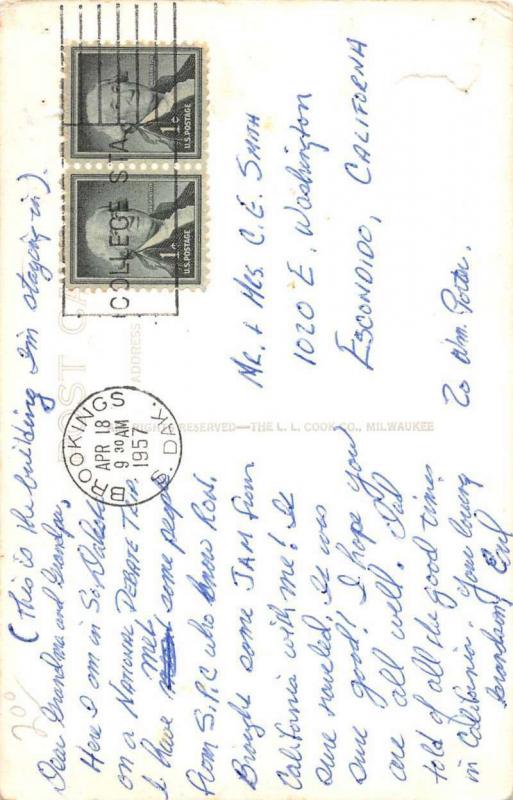 (This is the building I'm staying in).
Dear Grandma and Grandpa,
Here I am in So. Dakota
on a NATIONAL DEBATE T
I have met some people
from S.P.C who know Ron.
Brought some JAM from
California with me! It
sure traveled. It was
sure good! I hope you
are all well. Dad
told of all the good times
in California. Your loving
Grandson,
MR. & MRS C.E. SMITH
1020 E. Washington
ESCONDIDO, CALIFORNIA
% Wm. Porter.
BROOKINGS S. DAK.
APR 18
9 30 AM
1957
COLLEGE STA
1¢
U.S. POSTAGE
1¢
U.S. POSTAGE
POST CA
ADDRESS
RIGHTS RESERVED—THE L. L. COOK CO., MILWAUKEE
200